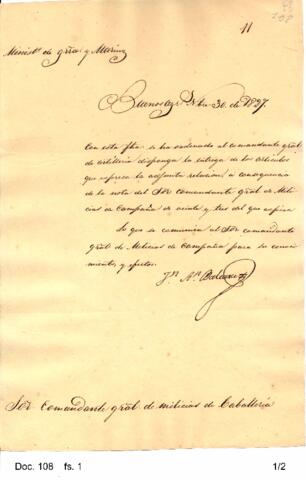 11
Minist.o de grra y Marina
Buenos Ayr.s Nbre 30. de 1827.
Con esta fha. se ha ordenado al comandante gral
de artilleria disponga la entrega de los articulos
que expresa la adjunta relacion, a consequencia
de la nota del Sor Comandante gral de Mili-
cias de Campaña de veinte y tres del que espira
Lo que se comunica al Sor comandante
gral de Milicias de Campaña para su conoci-
miento y efectos.
Jn Rn Balcarce
Sor Comandante gral de milicias de Caballeria
Doc. 108 fs. 1
1/2